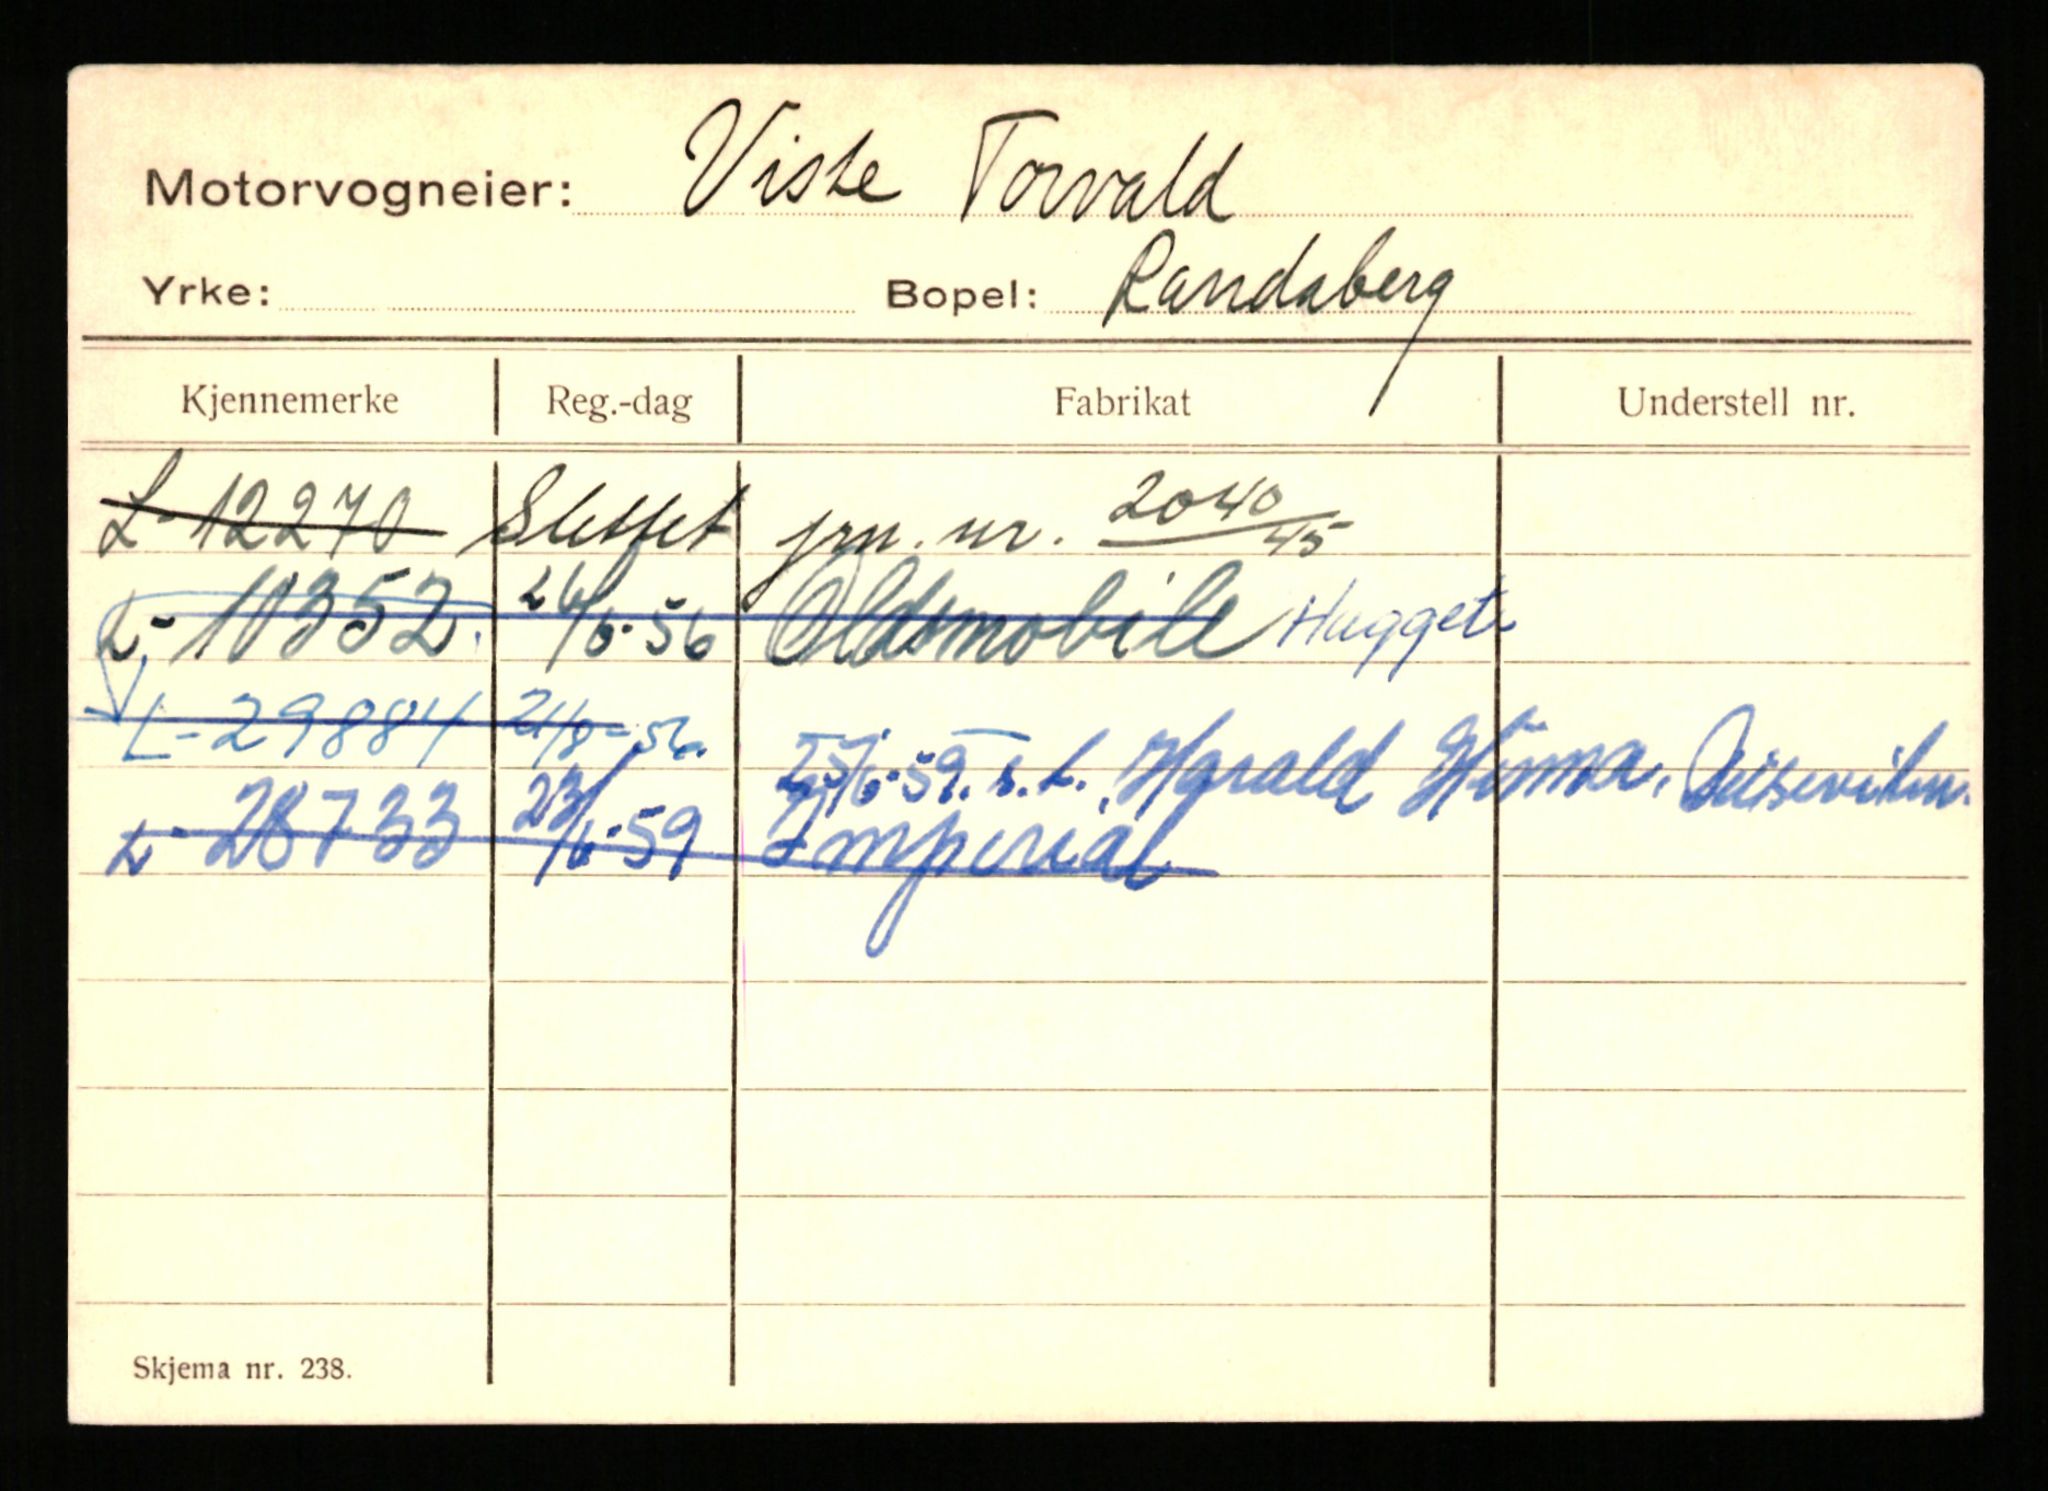 Motorvogneier: Viste Torvald
Yrke: Bopel: Randaberg
Kjennemerke Reg.-dag Fabrikat Understell nr.
L-12270 Slettet jrn. nr. 2040/45
L-10352. 26/6-56 Oldsmobile Hugget
L-29884 21/8-56.
25/6-59. s.t. Harald
L-28733 23/6-59 Imperial
Skjema nr. 238.